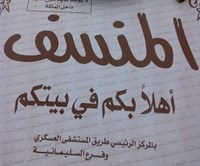 داخل المملكة
المنسف
أهلاً بكم في بيتكم
بالمركز الرئيسي طريق المستشفى العسكري
وفرع السليمانية